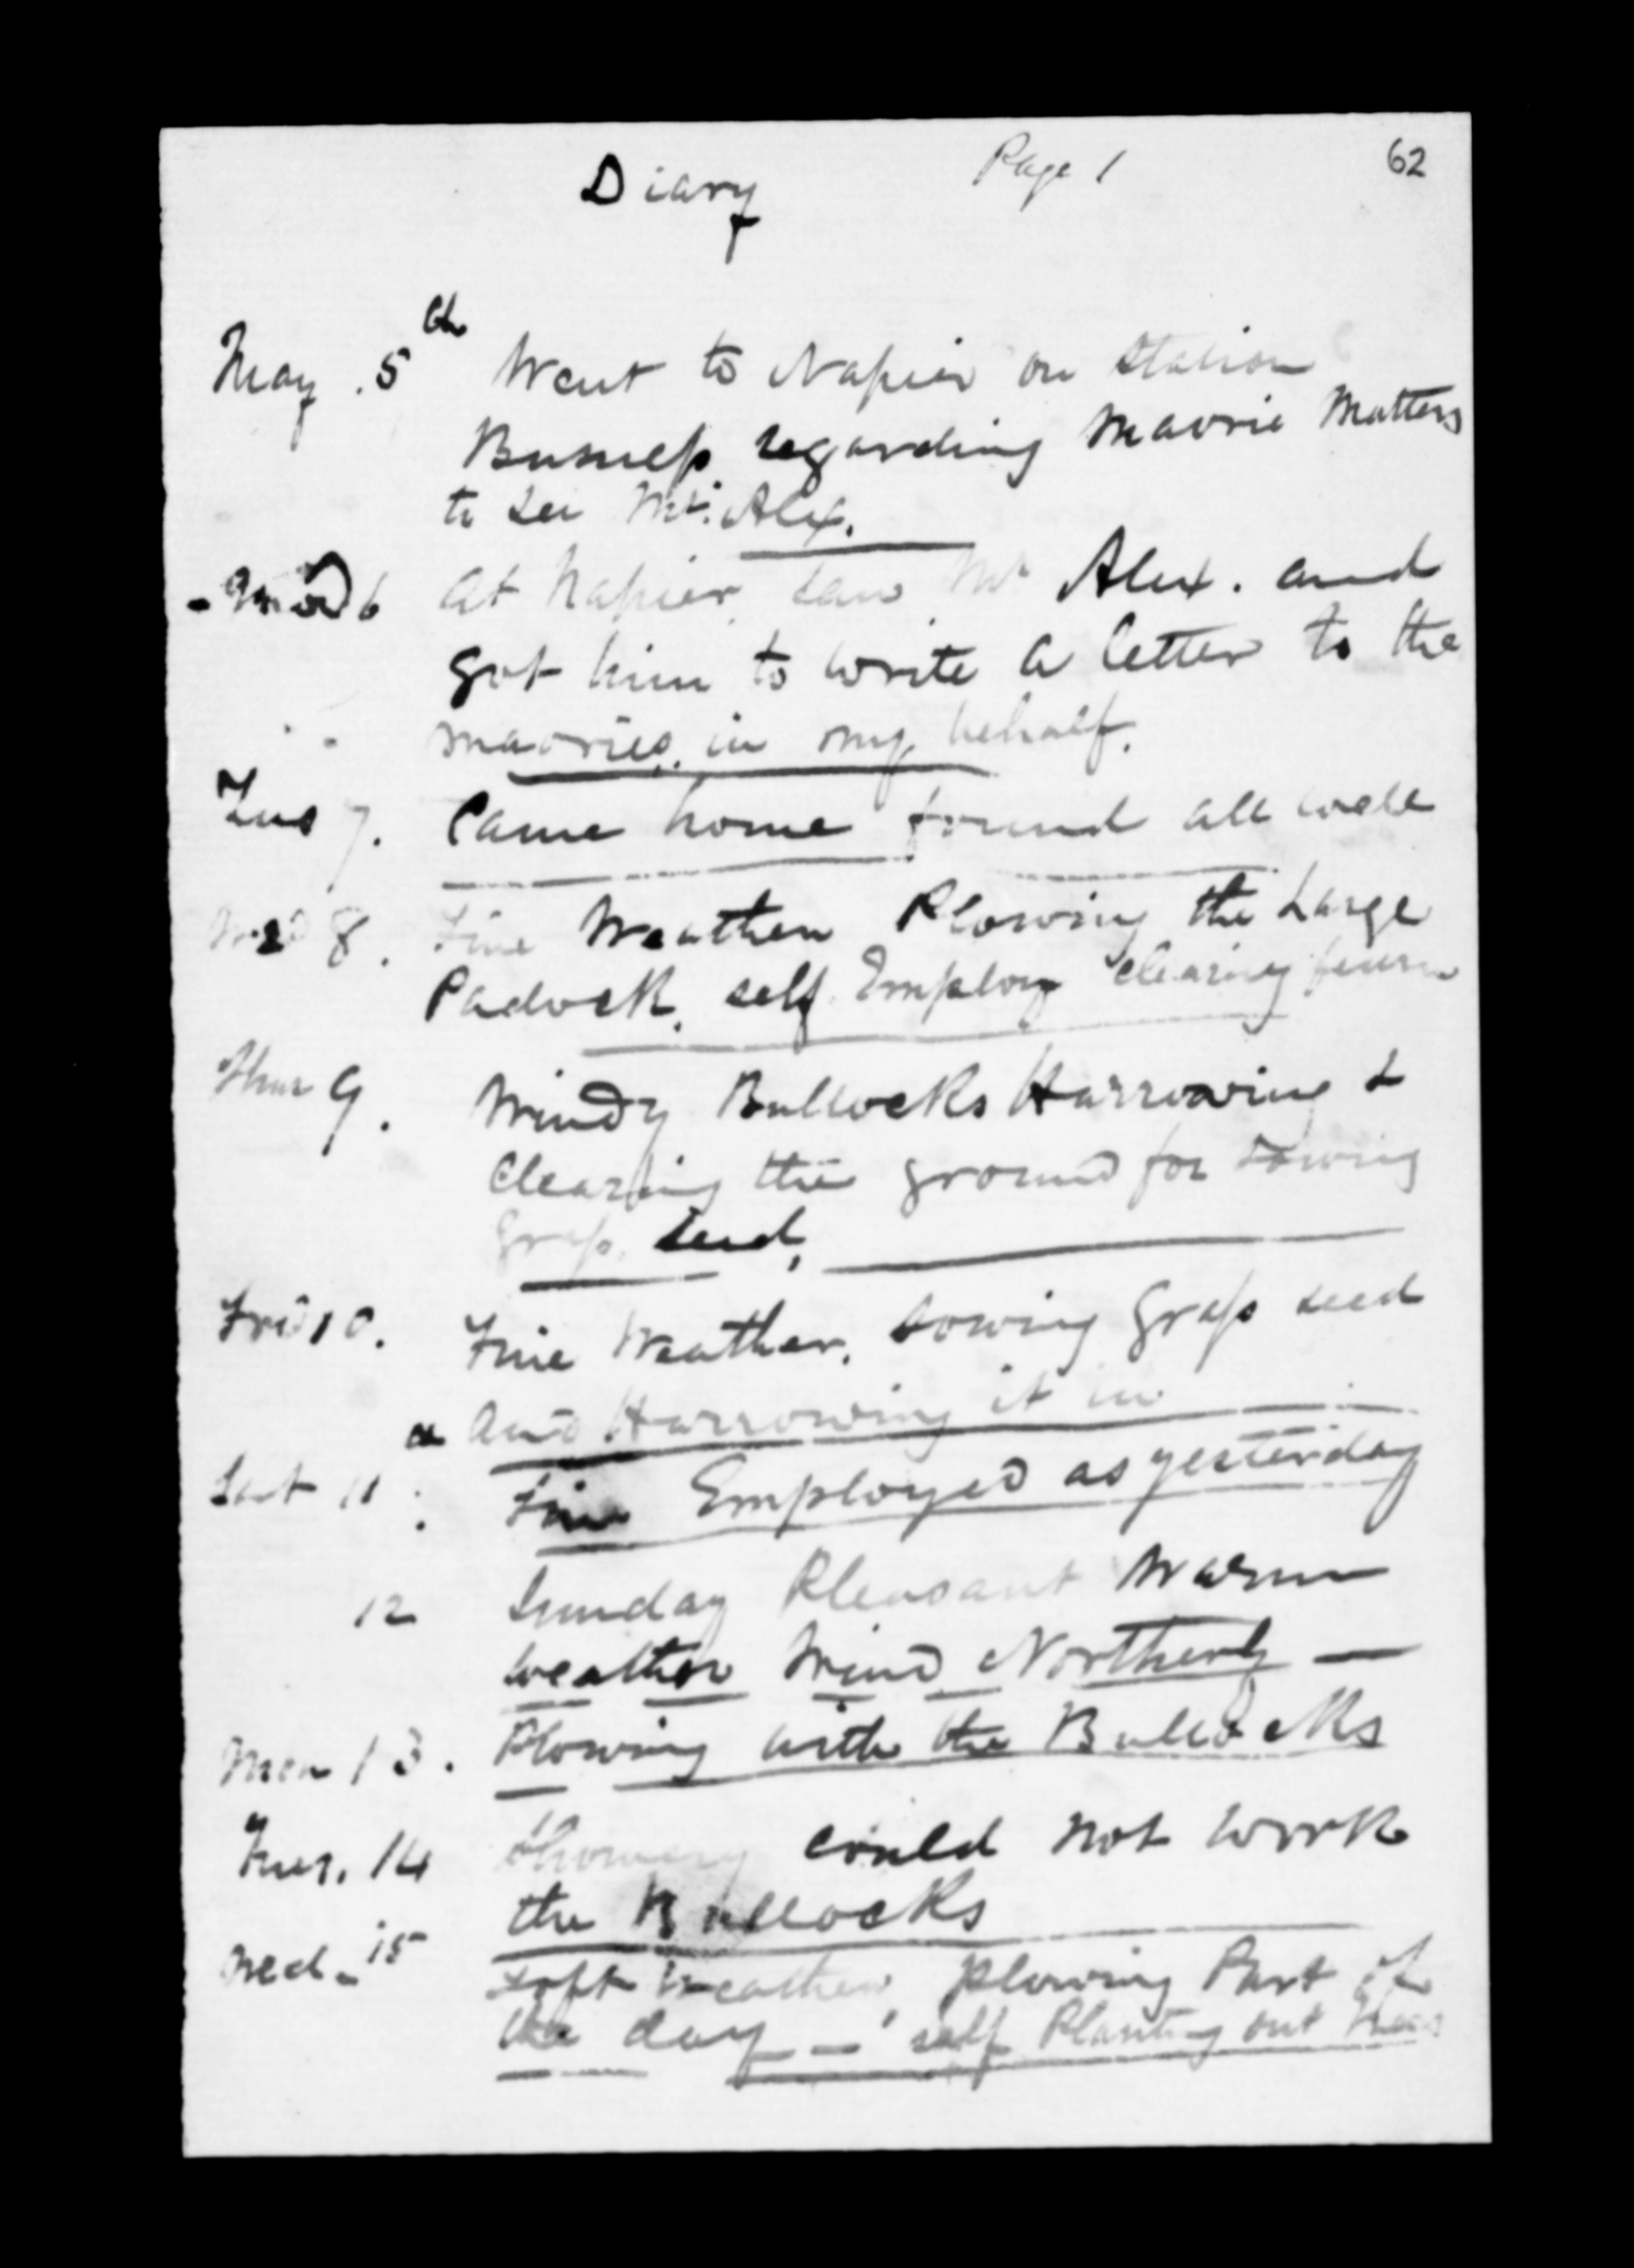 Diary Page 1 62
May. 5th Went to Napier on Station
Business regarding Maorie Matters
to see Mr. Alex.
- Mod 6 at Napier, saw Mr Alex. and
got him to write a letter to the
maories, in my behalf.
Tus 7. Came home found all well
Wed 8. Fine Weather Plowing the Large
Padock, self Employ clearing
Thur 9. Windy Bullocks Harrowing &
Clearing the ground for sowing
Grass seed,
Frid 10. Fine Weather. Sowing Grass seed
and Harrowing it in
Sat 11. Fine Employed as yesterday
12 Sunday Pleasant Warm
weather Wind Northerly —
Mon 13. Plowing with the Bullocks
Tues. 14 Showery could not work
the Bullocks
Wed - 15 soft Weather, plowing Part of
the day - self Planting out Trees